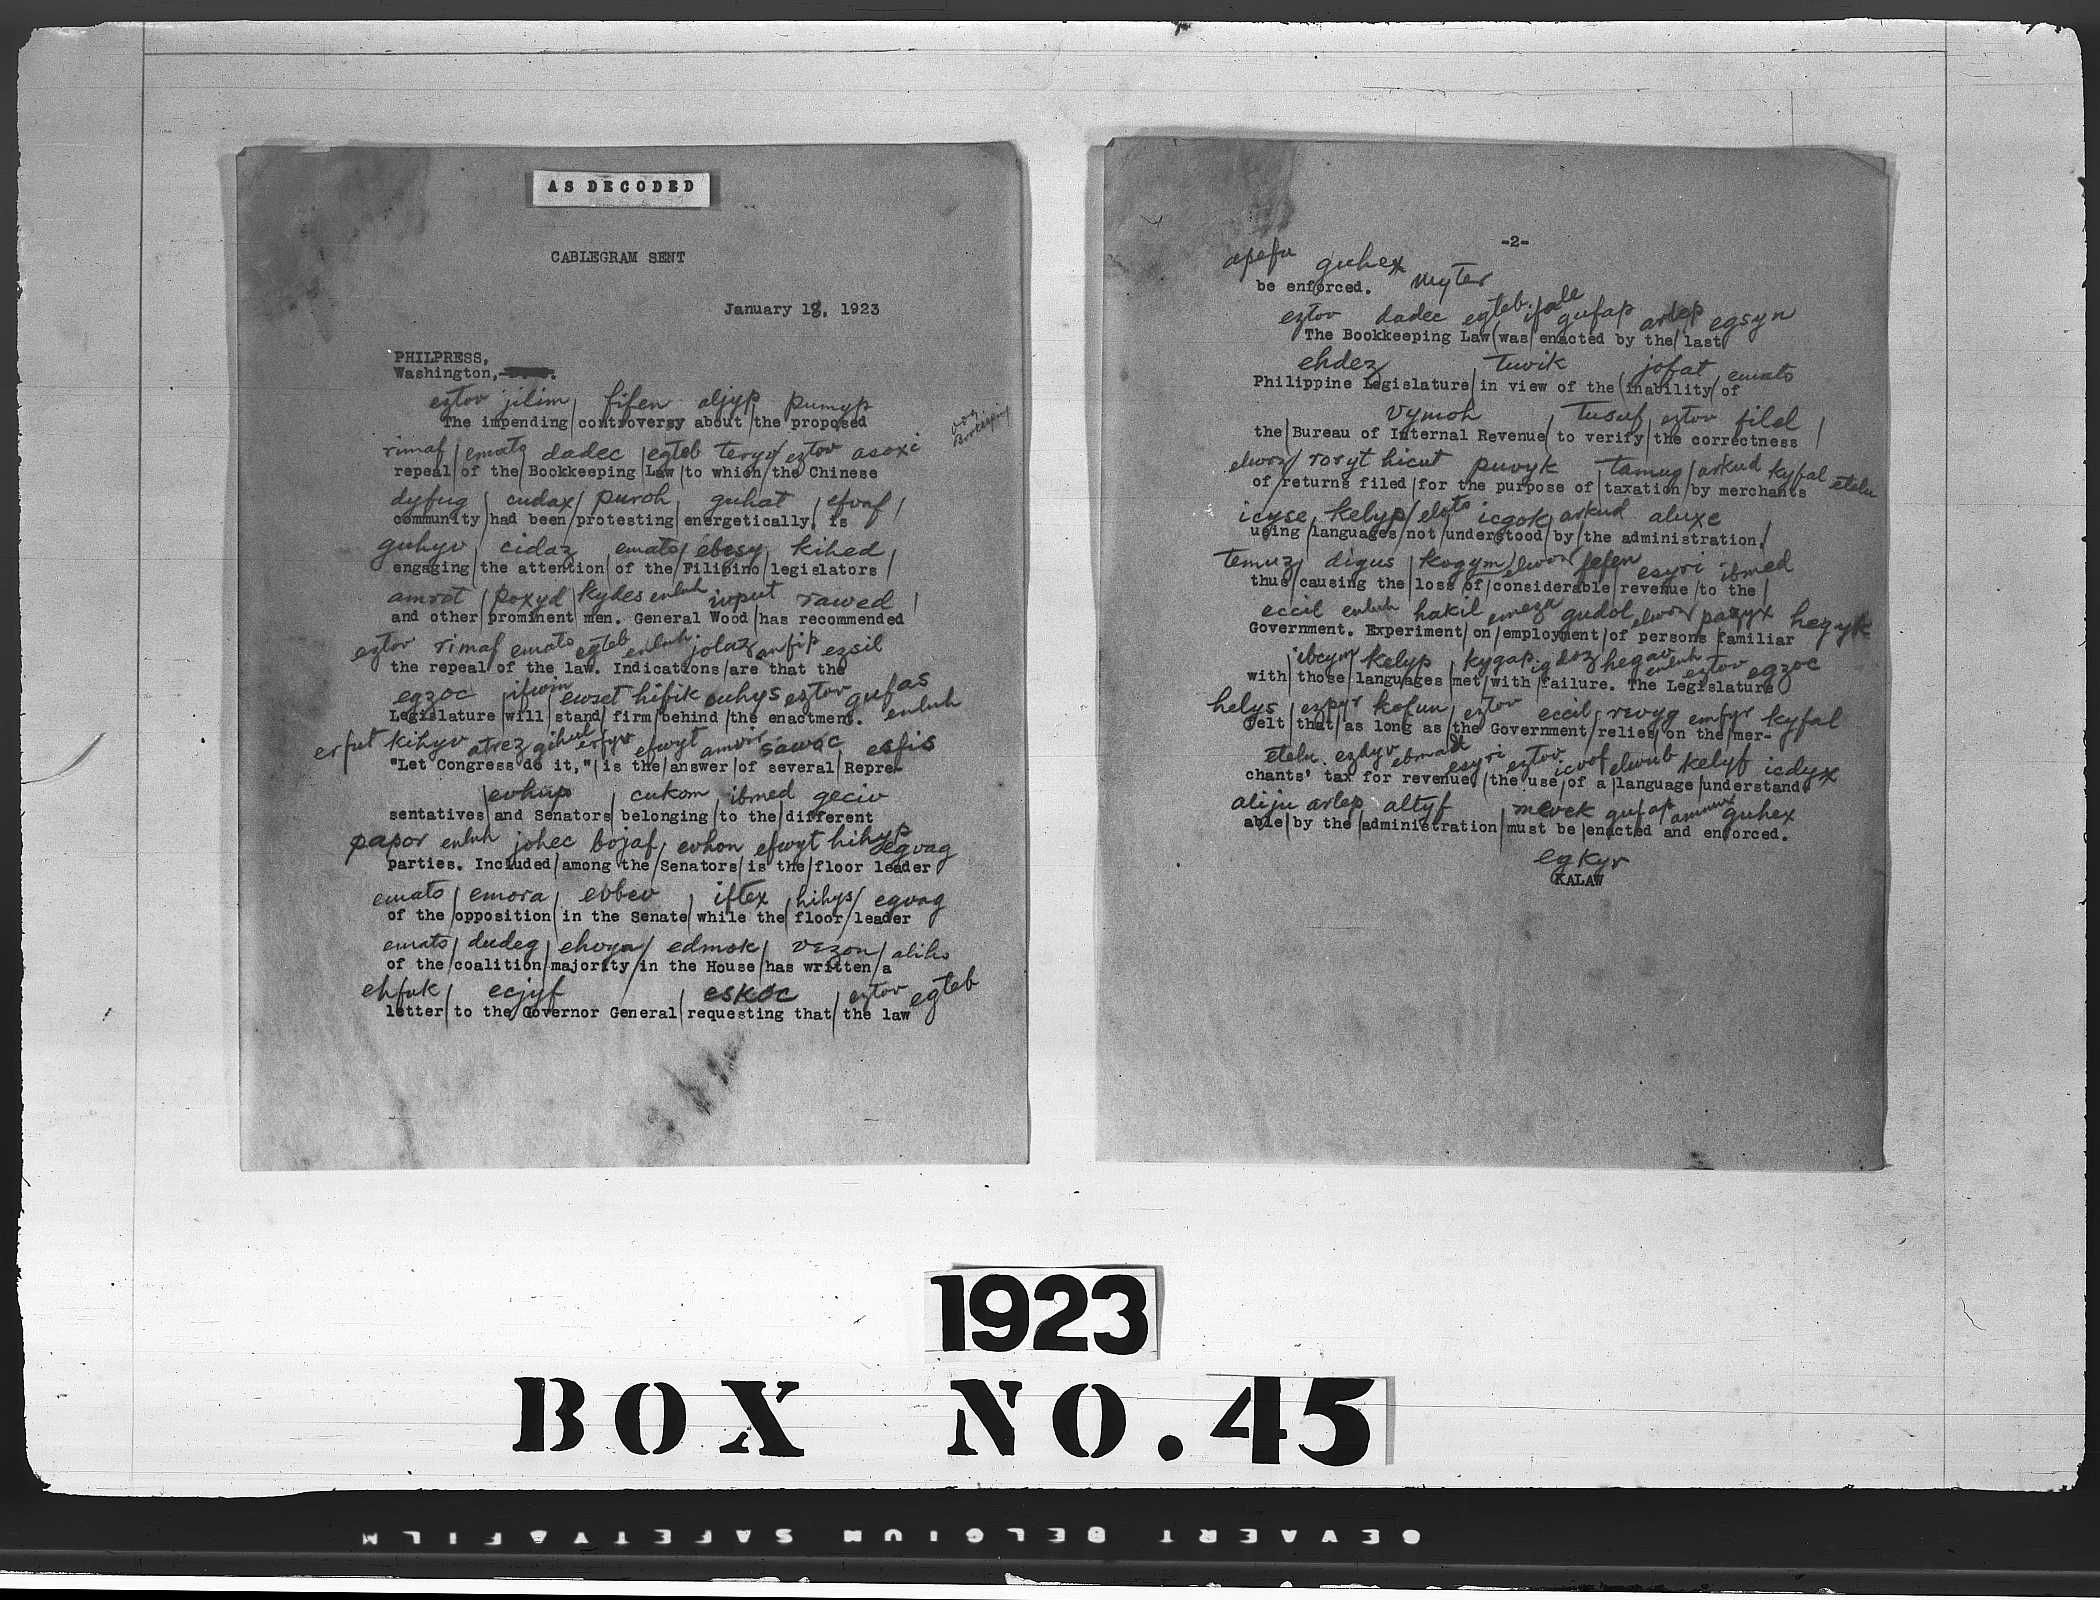 AS DECODED
CABLEGRAM SENT
January 18, 1923
PHILPRESS,
Washington,
eztov jilim fifen aljyp pumyp
The impending controversy about the proposed
rimaf emato dadec egteb teryv eztov asoxi
repeal of the Bookkeeping Law to which the Chinese
dyfug cudax puroh guhat efvaf
community had been protesting energetically, is
guhyv cidaz emato ebesy kihed
engaging the attention of the Filipino legislators
amrot poxyd kydes enluh ivput rawed
and other prominent men. General Wood has recommended
eztov rimaf emato egteb enluh jolaz anfip ezsil
the repeal of the law. Indications are that the
egzoc ifwin ewset hifik cuhys eztov gufas
Legislature will stand firm behind the enactment. enluh
erfut kihyv atrez gihul erfyv efwyt amvir sawoc esfis
"Let Congress do it," is the answer of several Repre-
evhup cukom ibmed geciv
sentatives and Senators belonging to the different
papor enluh johec bojaf evhon efwyt hihyp egvag
parties. Included among the Senators is the floor leader
emato emora evbev iftex hihys egvag
of the opposition in the Senate while the floor leader
emato dudeg ehvya edmok vezon aliho
of the coalition majority in the House has written a
ehfuk ecjyf eskoc eztov egteb
letter to the Governor General requesting that the law
-2-
apefu guhex myter
be enforced.
eztov dadec egteb ifale gufap arlep egsyn
The Bookkeeping Law was enacted by the last
ehdez tuvik jofat emato
Philippine Legislature in view of the inability of
vymoh tusuf eztov filel
the Bureau of Internal Revenue to verify the correctness
elwon roryt hicut puvyk tamug arkud kyfal etelu
of returns filed for the purpose of taxation by merchants
icyse kelyp eloto icgok arkud aluxe
using languages not understood by the administration,
temuz digus kogym elwon fefen esyri ibmed
thus causing the loss of considerable revenue to the
eccil enluh hakil emeza gudol elwon pazyx hegyk
Government. Experiment on employment of persons familiar
ibcym kelyp kygap igdoz hegav enluh eztov egzoc
with those languages met with failure. The Legislature
helys ezpyr kofun eztov eccil revyg emfyr kyfal
felt that as long as the Government relies on the mer-
etelu ezdyv ebmak esyri eztov icvof elwub kelyf icdyx
chants' tax for revenue, the use of a language understand-
aliju arlep altyf mevek gufap ammux guhex
able by the administration must be enacted and enforced.
egkyr
KALAW
1923
BOX NO. 45
GEVAERT BELGIUM SAFETY & FILM